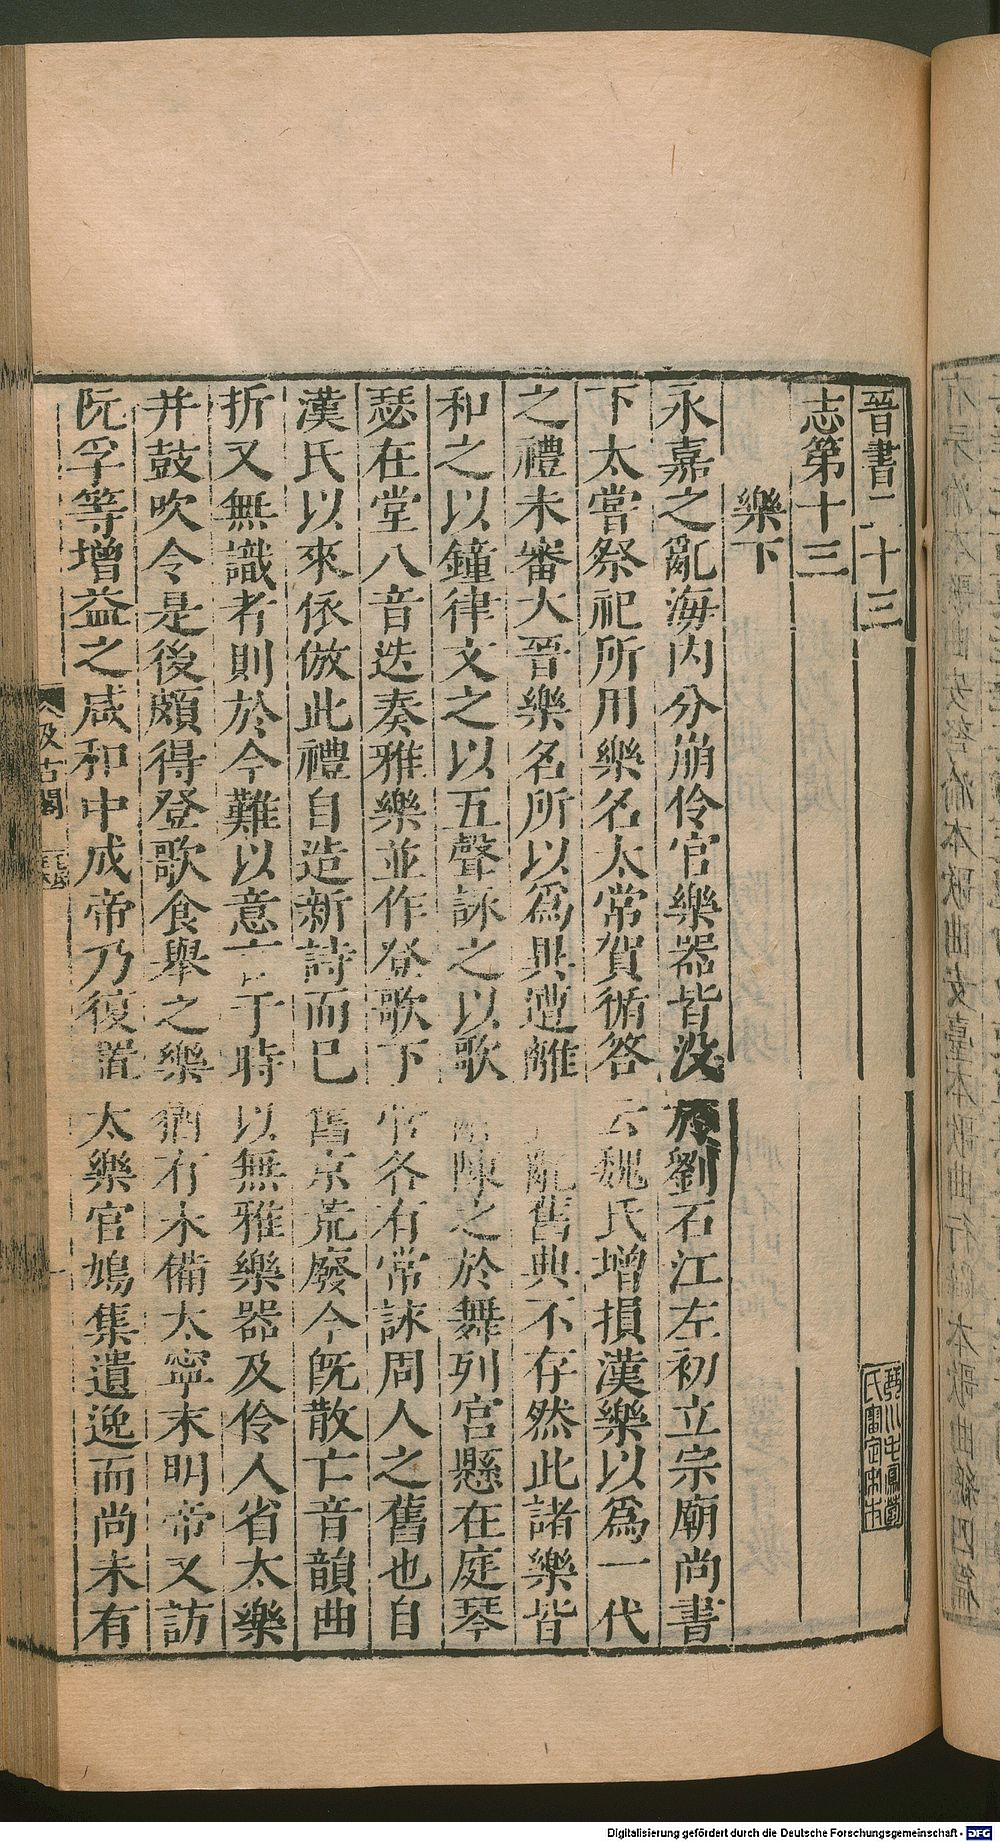 晉書二十三
志第十三
樂下
永嘉之亂海內分崩伶官樂器皆沒於劉石江左初立宗廟尚書
下太嘗祭祀所用樂名太常賀循答云魏氏增損漢樂以爲一代
之禮未審大晉樂名所以爲異遭離喪亂舊典不存然此諸樂皆
和之以鐘律文之以五聲詠之以歌陳之於舞列宮懸在庭琴
瑟在堂八音迭奏雅樂並作登歌下管各有常詠周人之舊也自
漢氏以來依倣此禮自造新詩而已舊京荒廢今旣散亡音韻曲
折又無識者則於今難以意言于時以無雅樂器及伶人省太樂
并鼓吹令是後頗得登歌食舉之樂猶有未備太寧末明帝又訪
阮孚等增益之咸和中成帝乃復置太樂官鳩集遺逸而尚未有
汲古閣
毛氏
正本
琴川毛鳳苞
氏審定宋本
Digitalisierung gefördert durch die Deutsche Forschungsgemeinschaft - DFG